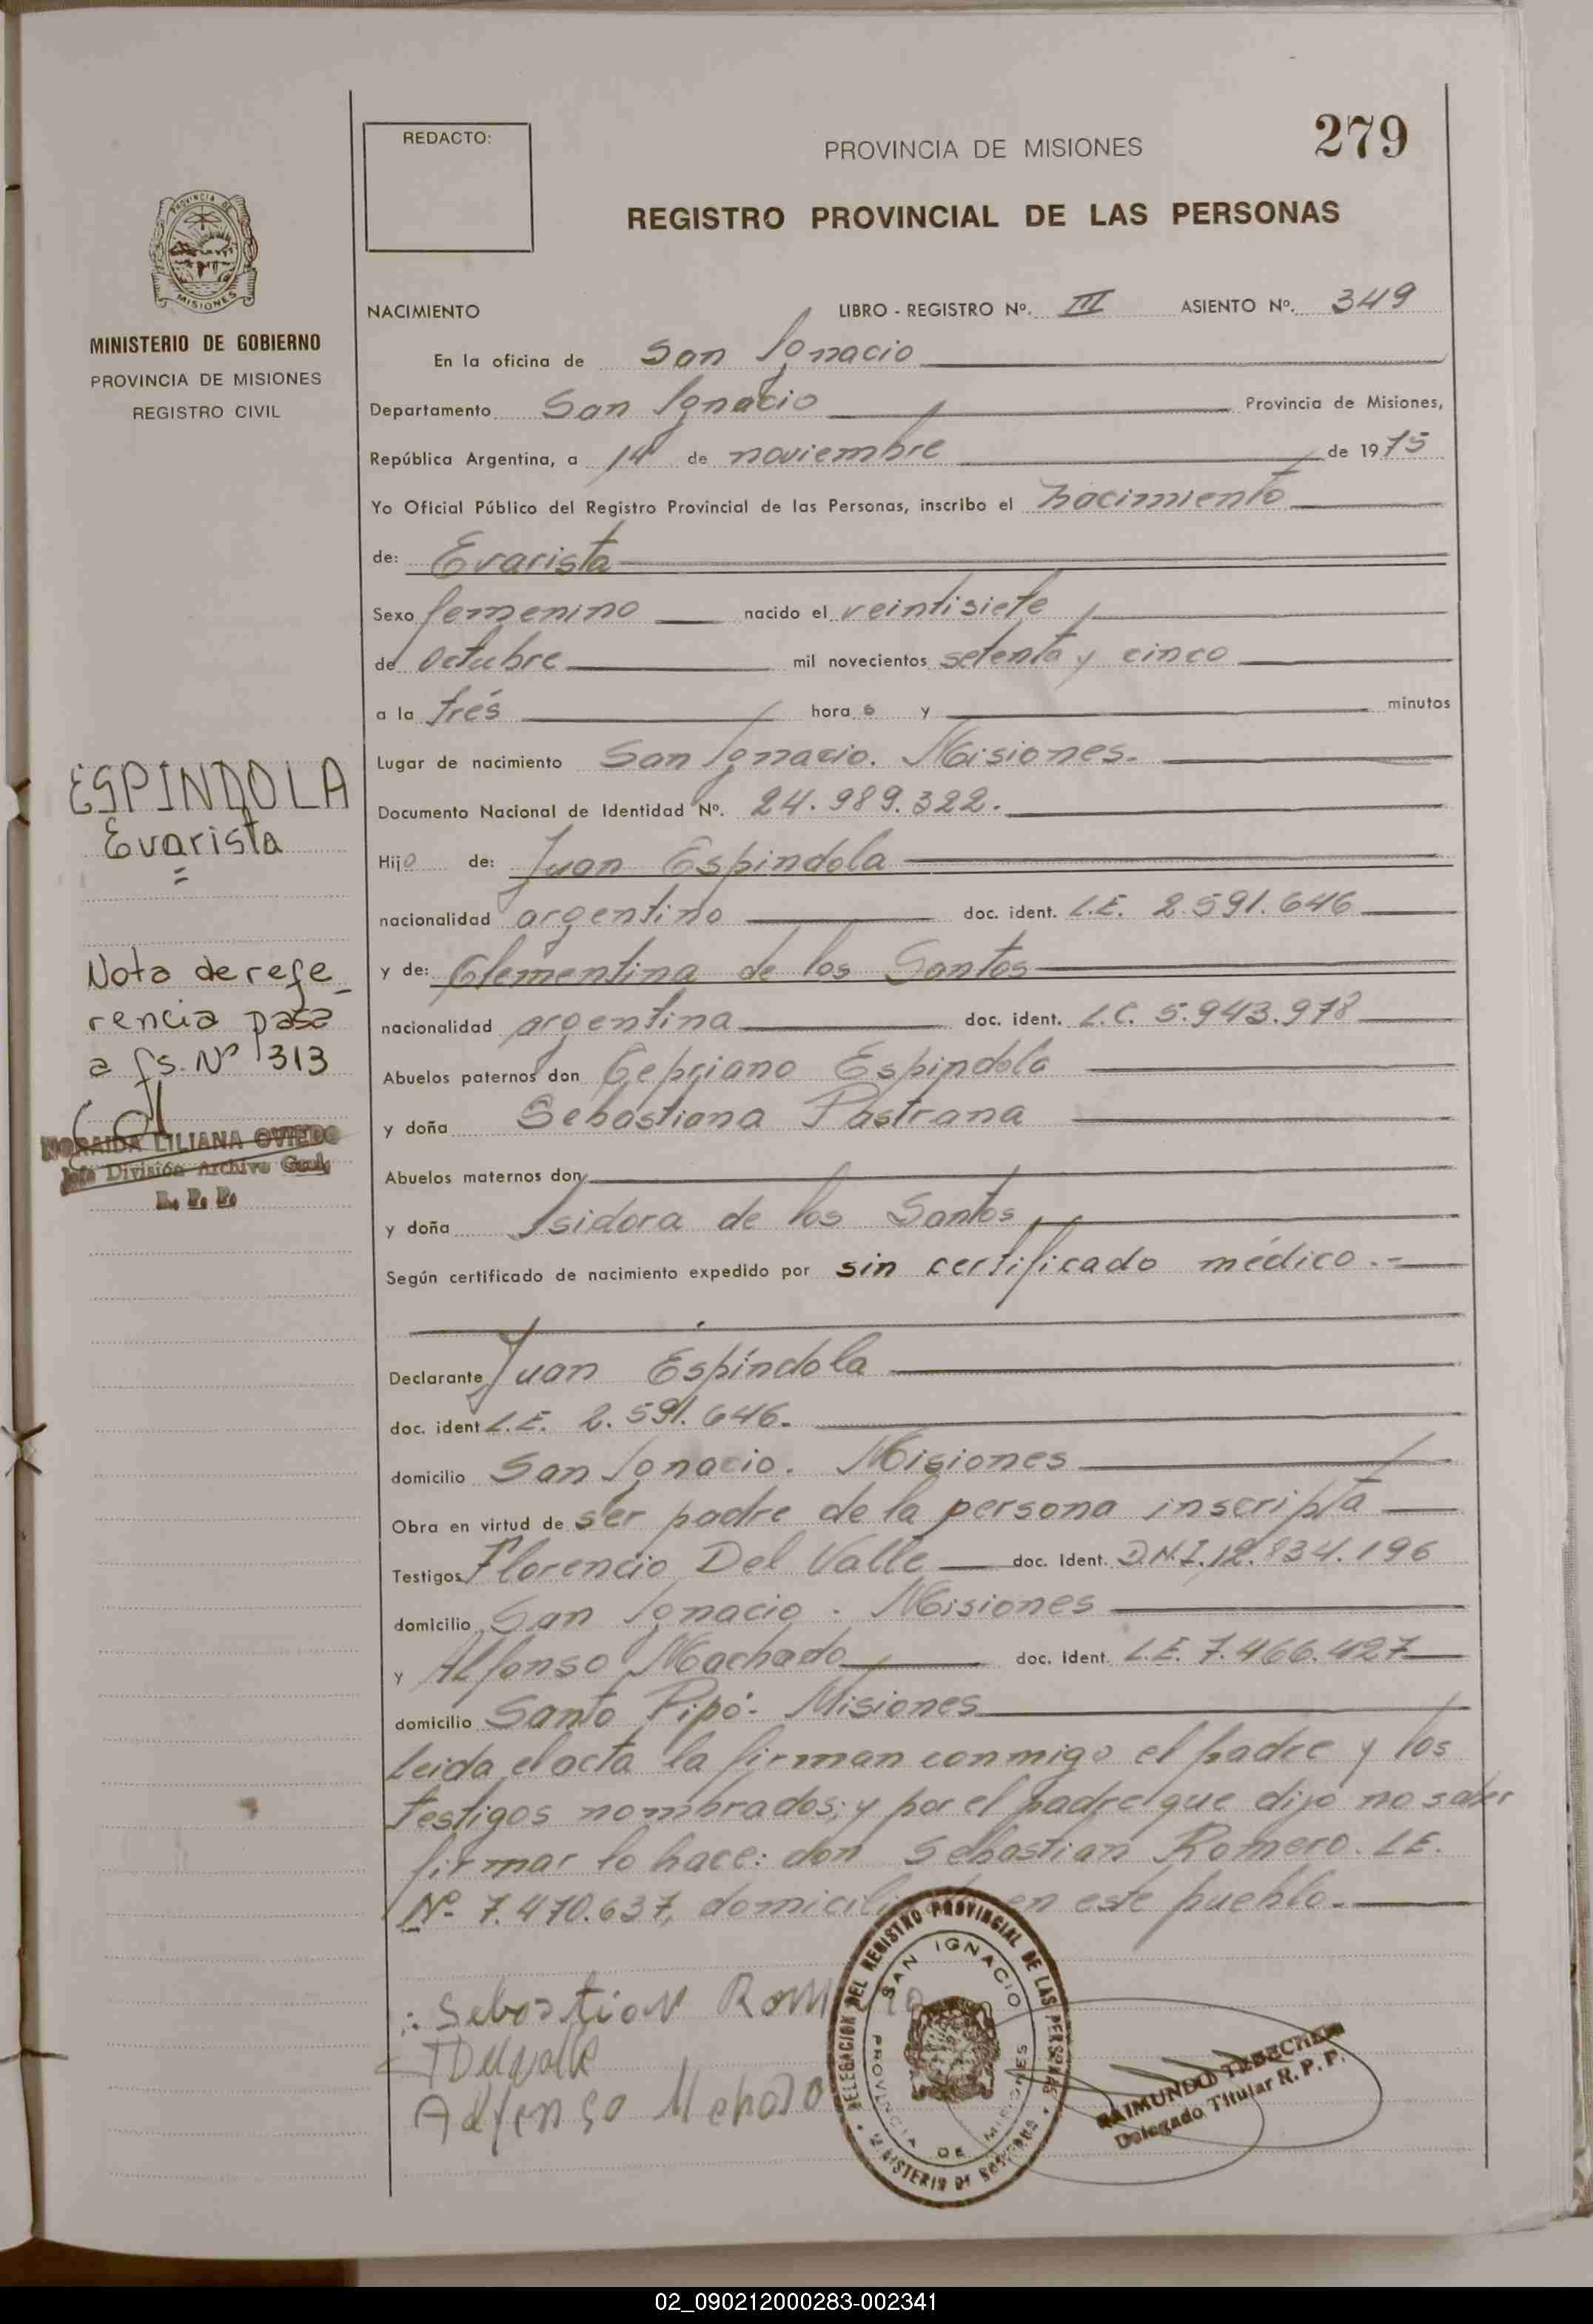 REDACTO:
PROVINCIA DE MISIONES
279
REGISTRO PROVINCIAL DE LAS PERSONAS
PROVINCIA DE
MISIONES
MINISTERIO DE GOBIERNO
PROVINCIA DE MISIONES
REGISTRO CIVIL
NACIMIENTO LIBRO - REGISTRO Nº. III ASIENTO Nº. 349
En la oficina de San Ignacio
Departamento San Ignacio Provincia de Misiones,
República Argentina, a 14 de noviembre de 1975
Yo Oficial Público del Registro Provincial de las Personas, inscribo el nacimiento
de: Evarista
Sexo femenino nacido el veintisiete
de octubre mil novecientos setenta y cinco
a la trés hora s y minutos
Lugar de nacimiento San Ignacio. Misiones.
Documento Nacional de Identidad Nº. 24.989.322.
Hijo de: Juan Espindola
nacionalidad argentino doc. ident. L.E. 2.591.646
y de: Clementina de los Santos
nacionalidad argentina doc. ident. L.C. 5.943.978
Abuelos paternos don Cepriano Espindola
y doña Sebastiana Pastrana
Abuelos maternos don
y doña Isidora de los Santos
Según certificado de nacimiento expedido por sin certificado médico.-
Declarante Juan Espíndola
doc. ident L.E. 2.591.646.
domicilio San Ignacio. Misiones
Obra en virtud de ser padre de la persona inscripta
Testigos Florencio Del Valle doc. Ident. D.N.I. 12.834.196
domicilio San Ignacio. Misiones
y Alfonso Machado doc. ident. L.E. 7.466.427
domicilio Santo Pipó- Misiones
Leida el acta la firman conmigo el padre y los
testigos nombrados; y por el padre que dijo no saber
firmar lo hace: don Sebastian Romero. LE.
Nº 7.470.637, en este pueblo.
ESPINDOLA
Evarista
=
Nota de refe_
rencia pasa
a fs. Nº 313
NORAIDA LILIANA OVIEDO
Jefe División Archivo Gral.
R. P. P.
Sebastian
Delvalle
DELEGACION DEL REGISTRO PROVINCIAL DE LAS PERSONAS
SAN IGNACIO
PROVINCIA DE MISIONES
MINISTERIO DE GOBIERNO
RAIMUNDO
Delegado Titular R. P. P.
02_090212000283-002341